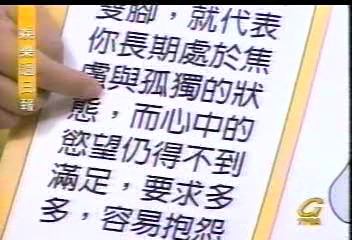 雙腳，就代表
你長期處於焦
慮與孤獨的狀
態，而心中的
慾望仍得不到
滿足，要求多
多，容易抱怨
娛樂週日報